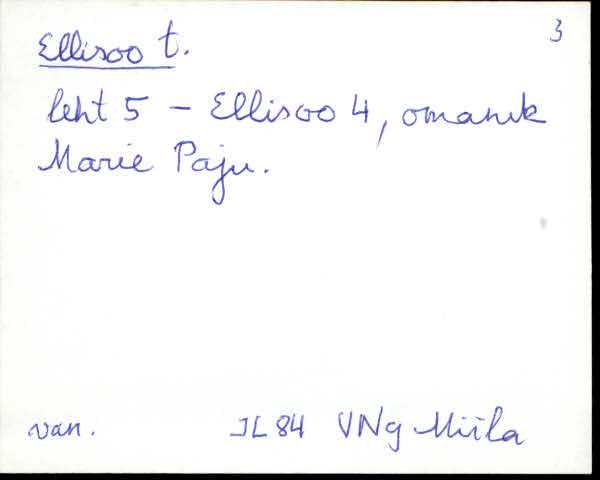 3
Ellisoo t.
leht 5 - Ellisoo 4, omanik
Marie Paju.
van. JL 84 VNg Miila